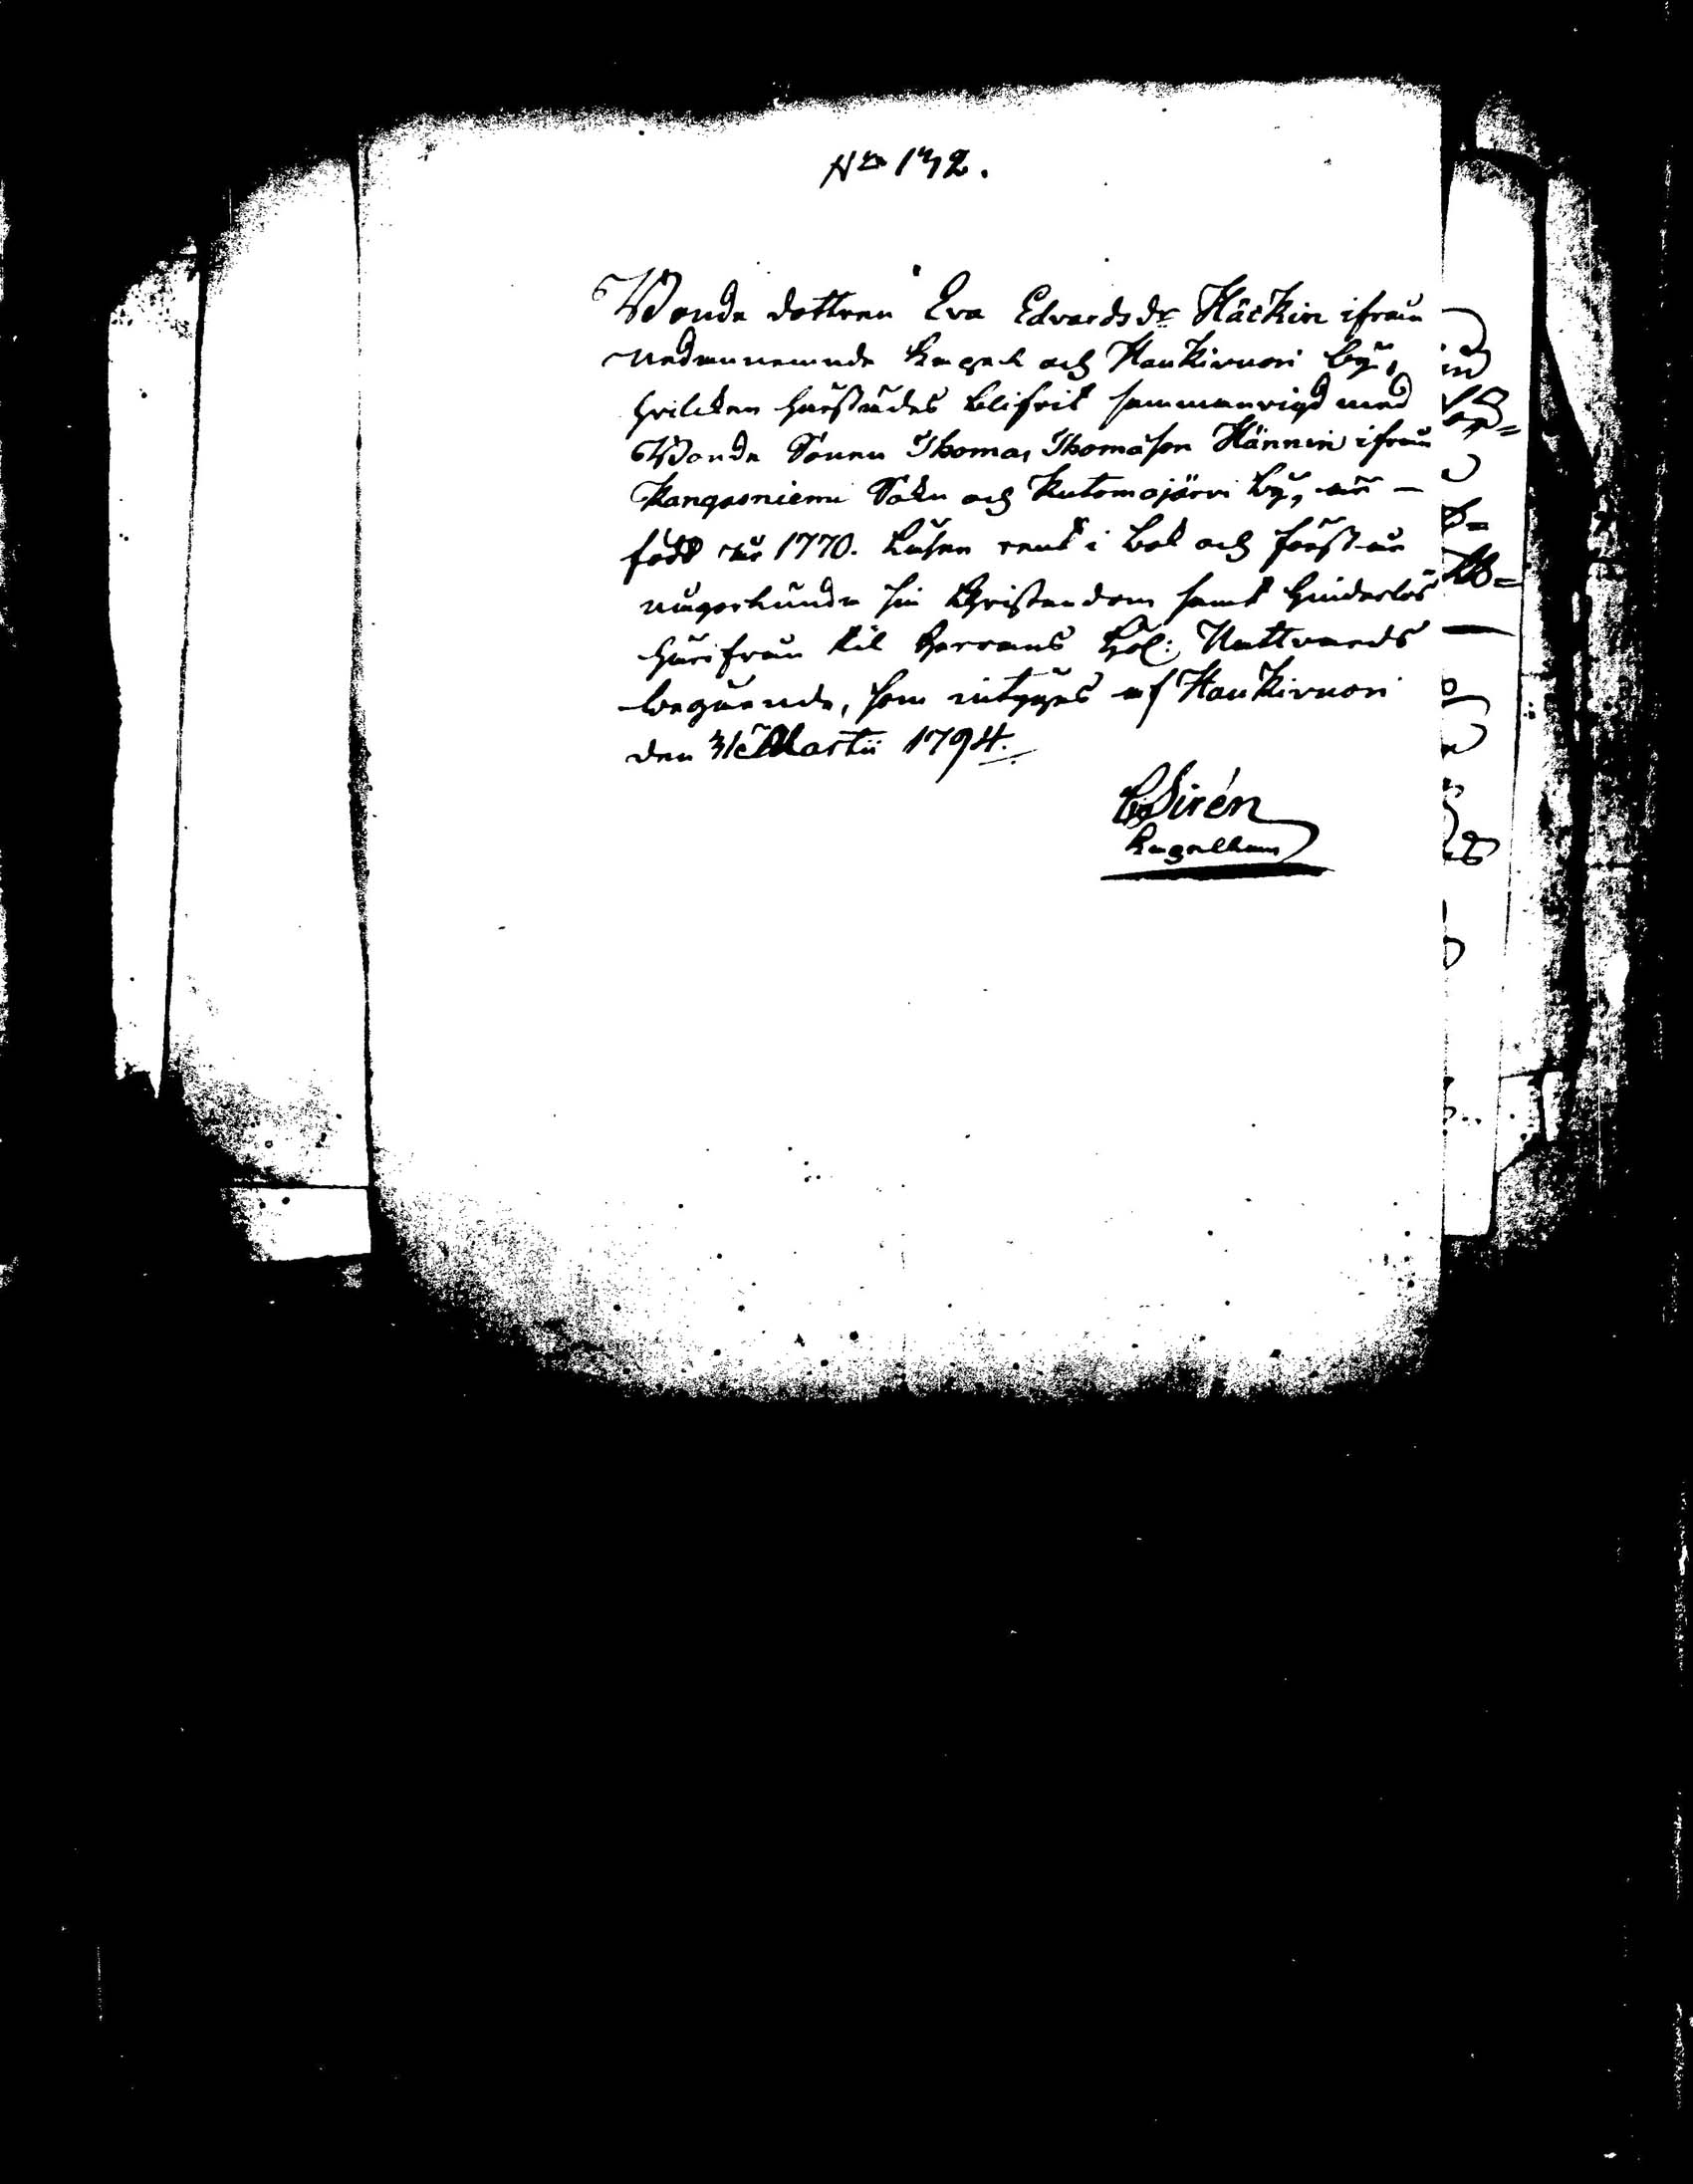 No 132.
Bonde dottren Eva Edvardsdr Häckin ifrån
nedannemnde Capel och Haukivuori by,
hvilcken härstädes blifvit sammanvigd med
Bonde Sonen Thomas Thomasson Hännin ifrån
Kangasniemi Sokn och Kutemajärvi by, är
född år 1770. Läser rent i bok och förstår
nugorlunda sin Christendom samt hinderlös
härifrån til Herrans Höl: Nattvards
begående, som intygas af Haukivuori
den 31 Martii 1794.
Sirén
Capellan